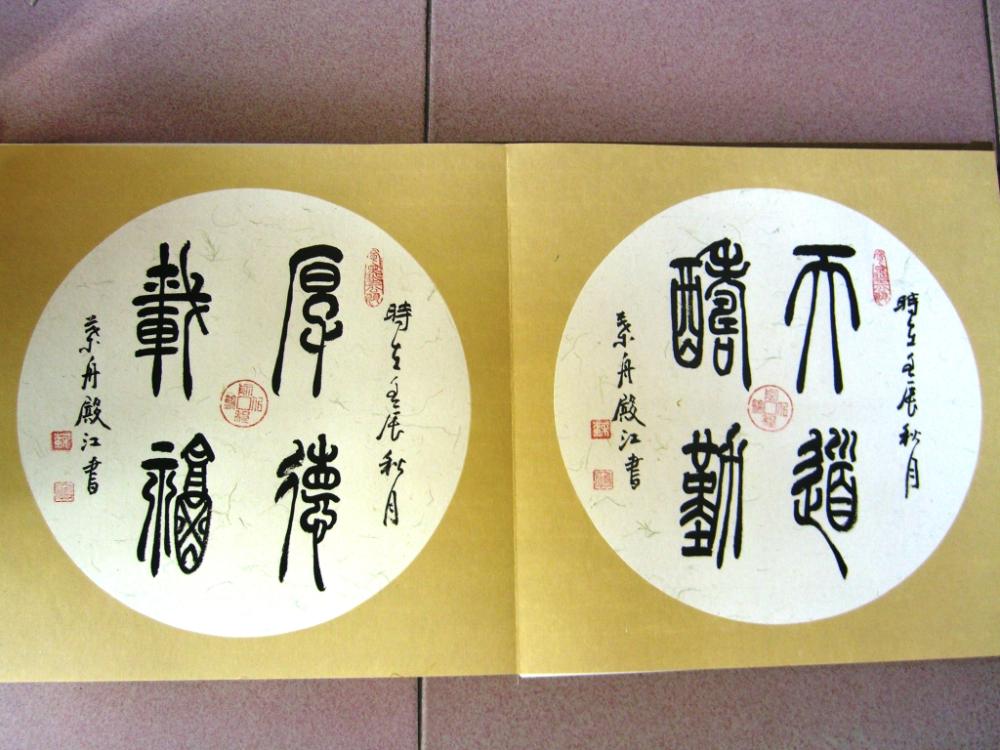 時在壬辰秋月
天道
醻勤
舟殿江書
時在壬辰秋月
厚德
載福
舟殿江書